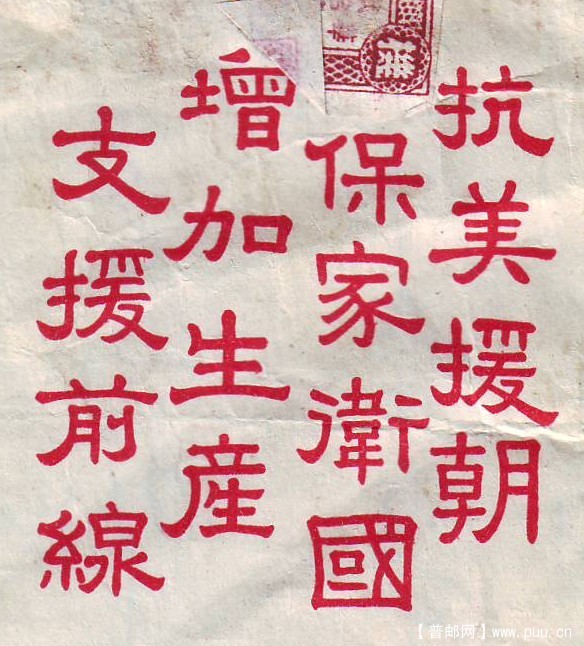 抗美援朝
保家衛國
增加生産
支援前線
【普邮网】www.puu.cn